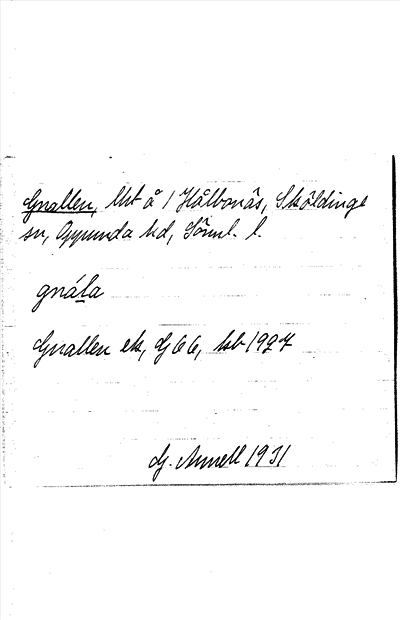 Gnallen, lht å 1 Hålbonäs, Sköldinge
sn, Oppunda hd, Söml. l.
gnála
Gnallen ek, G66, hsb 1927
G. Annell 1931